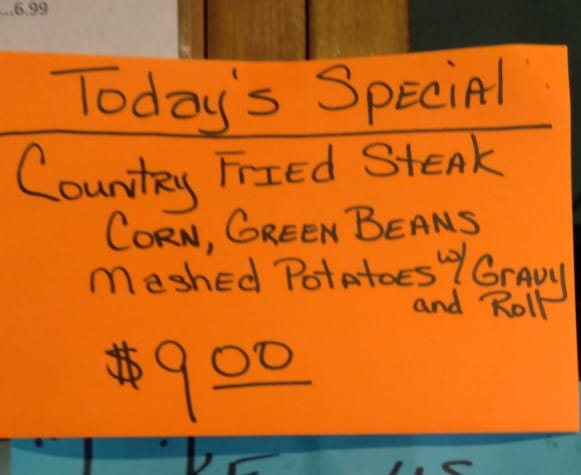 ...6.99
Today's Special
Country Fried Steak
Corn, Green Beans
Mashed Potatoes w/ Gravy
and Roll
$9.00